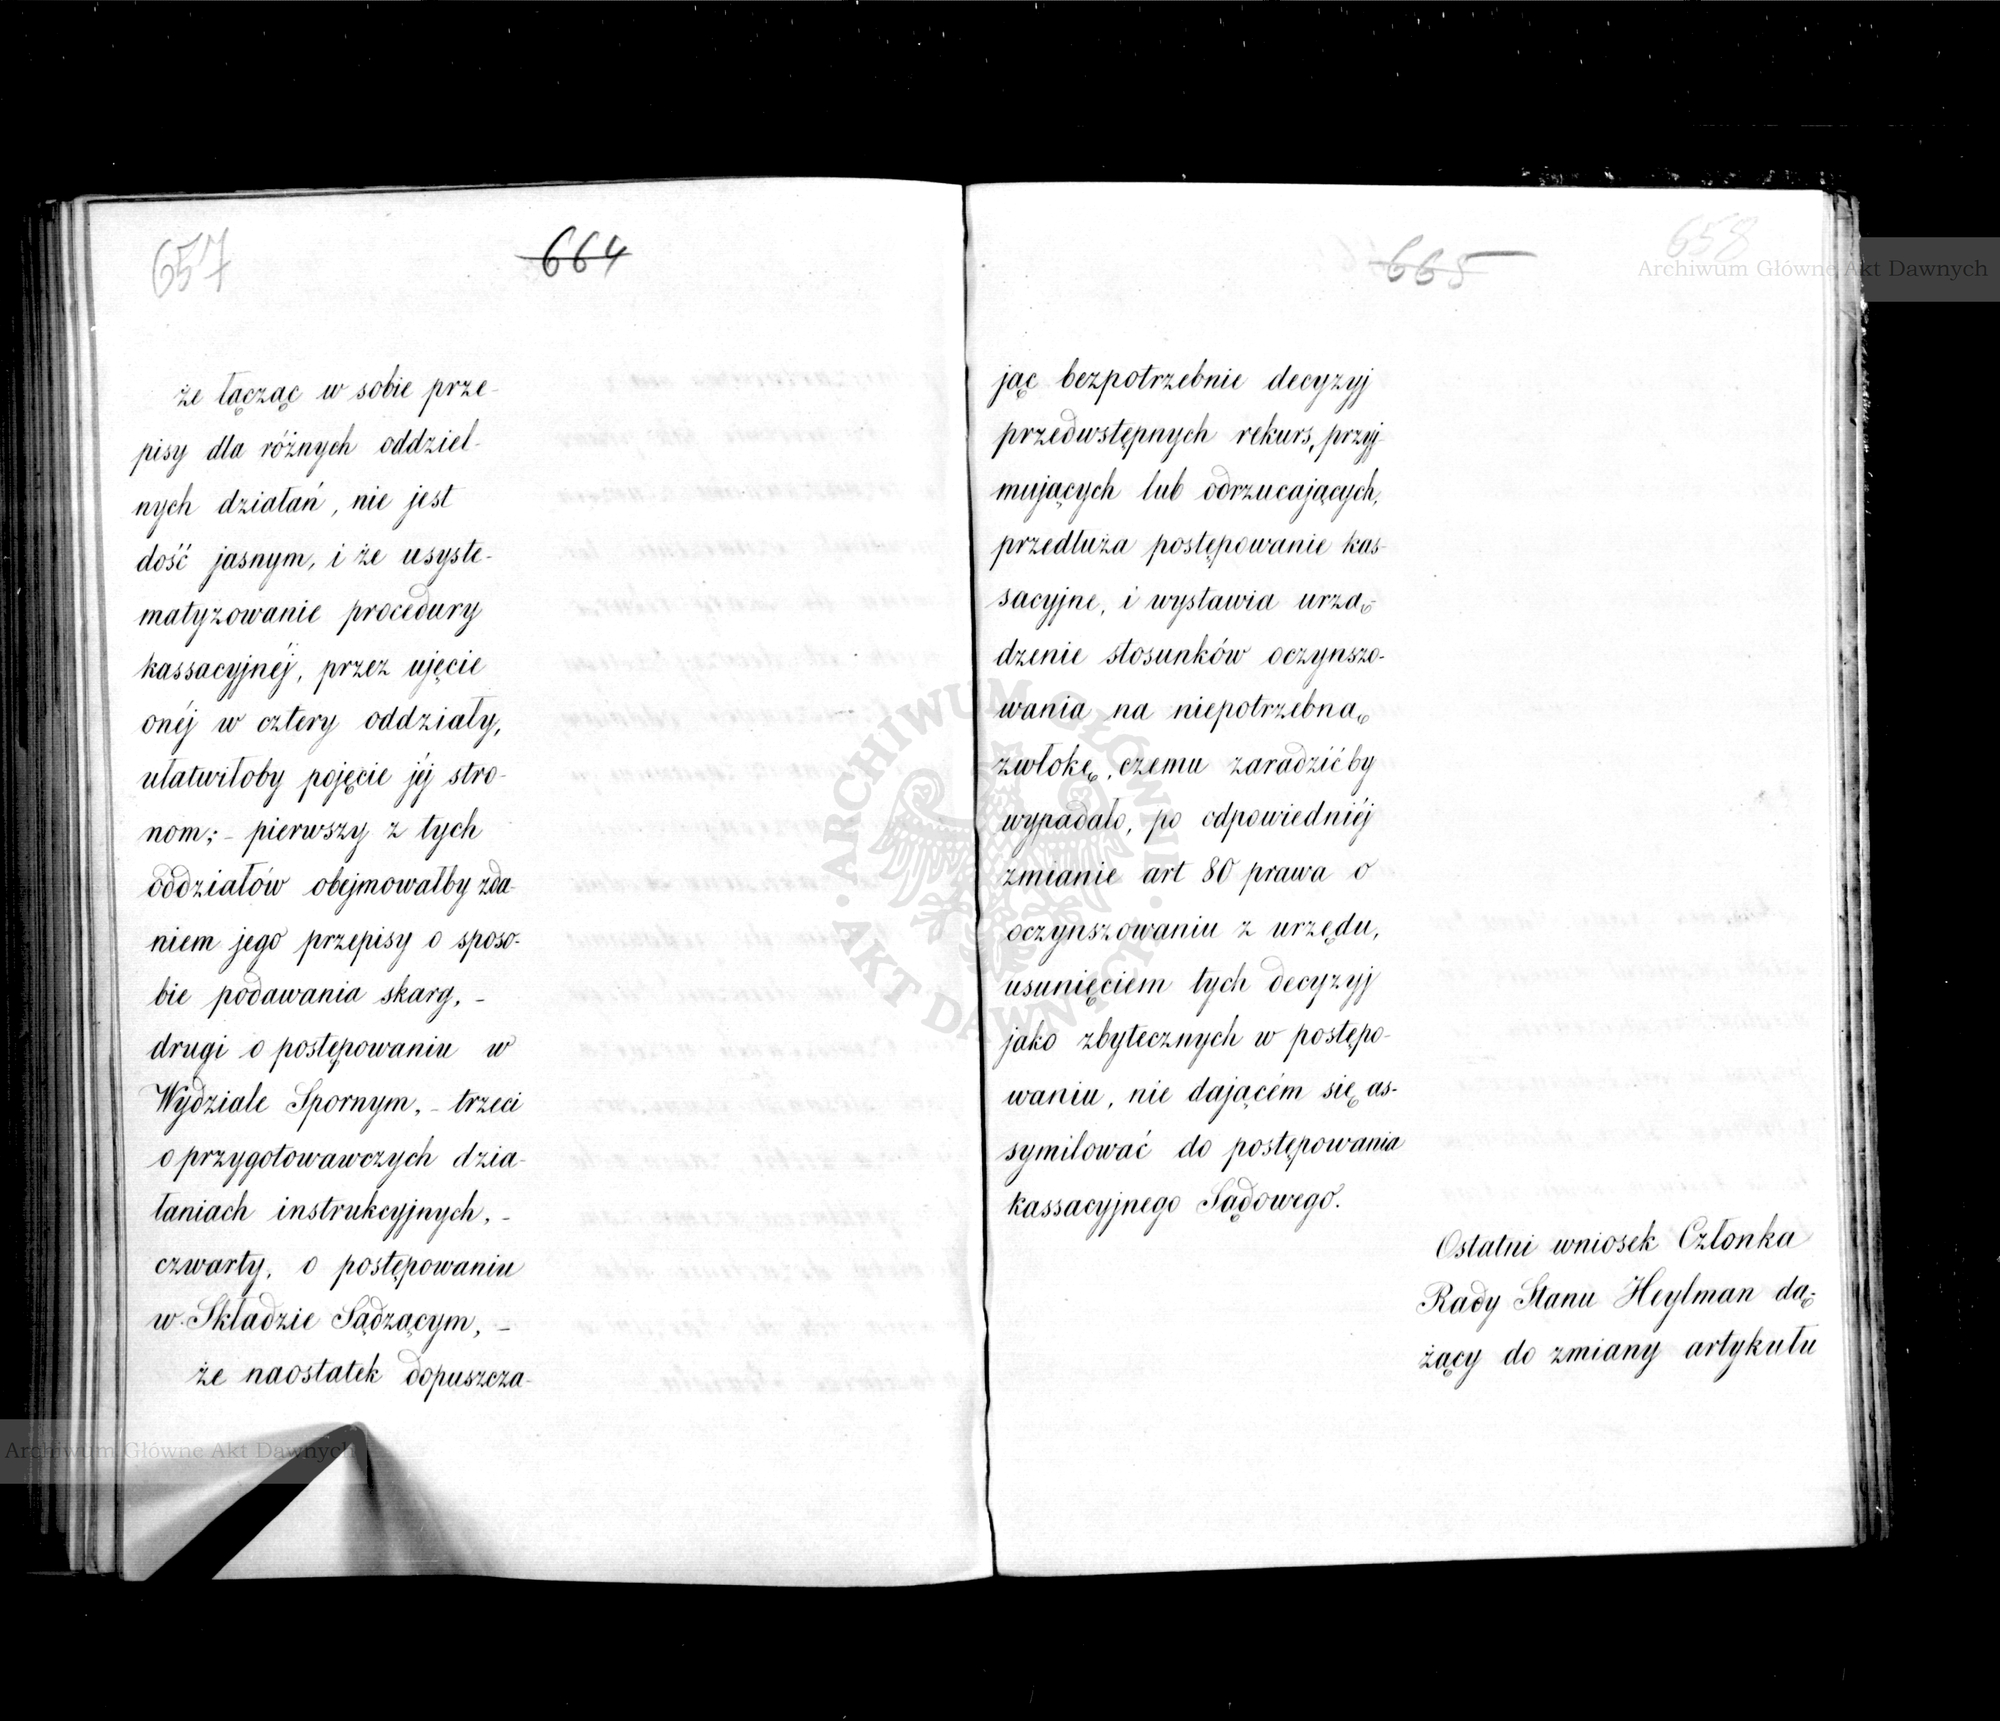 657
664
że łącząc w sobie prze-
pisy dla różnych oddziel-
nych działań, nie jest
dość jasnym, i że usyste-
matyzowanie procedury
kassacyjnéj, przez ujęcie
onéj w cztery oddziały,
ułatwiłoby pojęcie jéj stro-
nom; - pierwszy z tych
oddziałów obejmowałby zda-
niem jego przepisy o sposo-
bie podawania skarg, -
drugi o postępowaniu w
Wydziale Spornym, - trzeci
o przygotowawczych dzia-
łaniach instrukcyjnych, -
czwarty, o postępowaniu
w Składzie Sądzącym, -
że naostatek dopuszcza-
665
658
jąc bezpotrzebnie decyzyj
przedwstępnych rekurs, przyj-
mujących lub odrzucających,
przedłuża postępowanie kas-
sacyjne, i wystawia urzą-
dzenie stosunków oczynszo-
wania na niepotrzebną
zwłokę, czemu zaradzić by
wypadało, po odpowiedniéj
zmianie art 80 prawa o
oczynszowaniu z urzędu,
usunięciem tych decyzyj
jako zbytecznych w postępo-
waniu, nie dającém się as-
symilować do postępowania
kassacyjnego Sądowego.
Ostatni wniosek Członka
Rady Stanu Heylman dą-
żący do zmiany artykułu
Archiwum Główne Akt Dawnych
Archiwum Główne Akt Dawnych
ARCHIWUM GŁÓWNE · AKT DAWNYCH ·